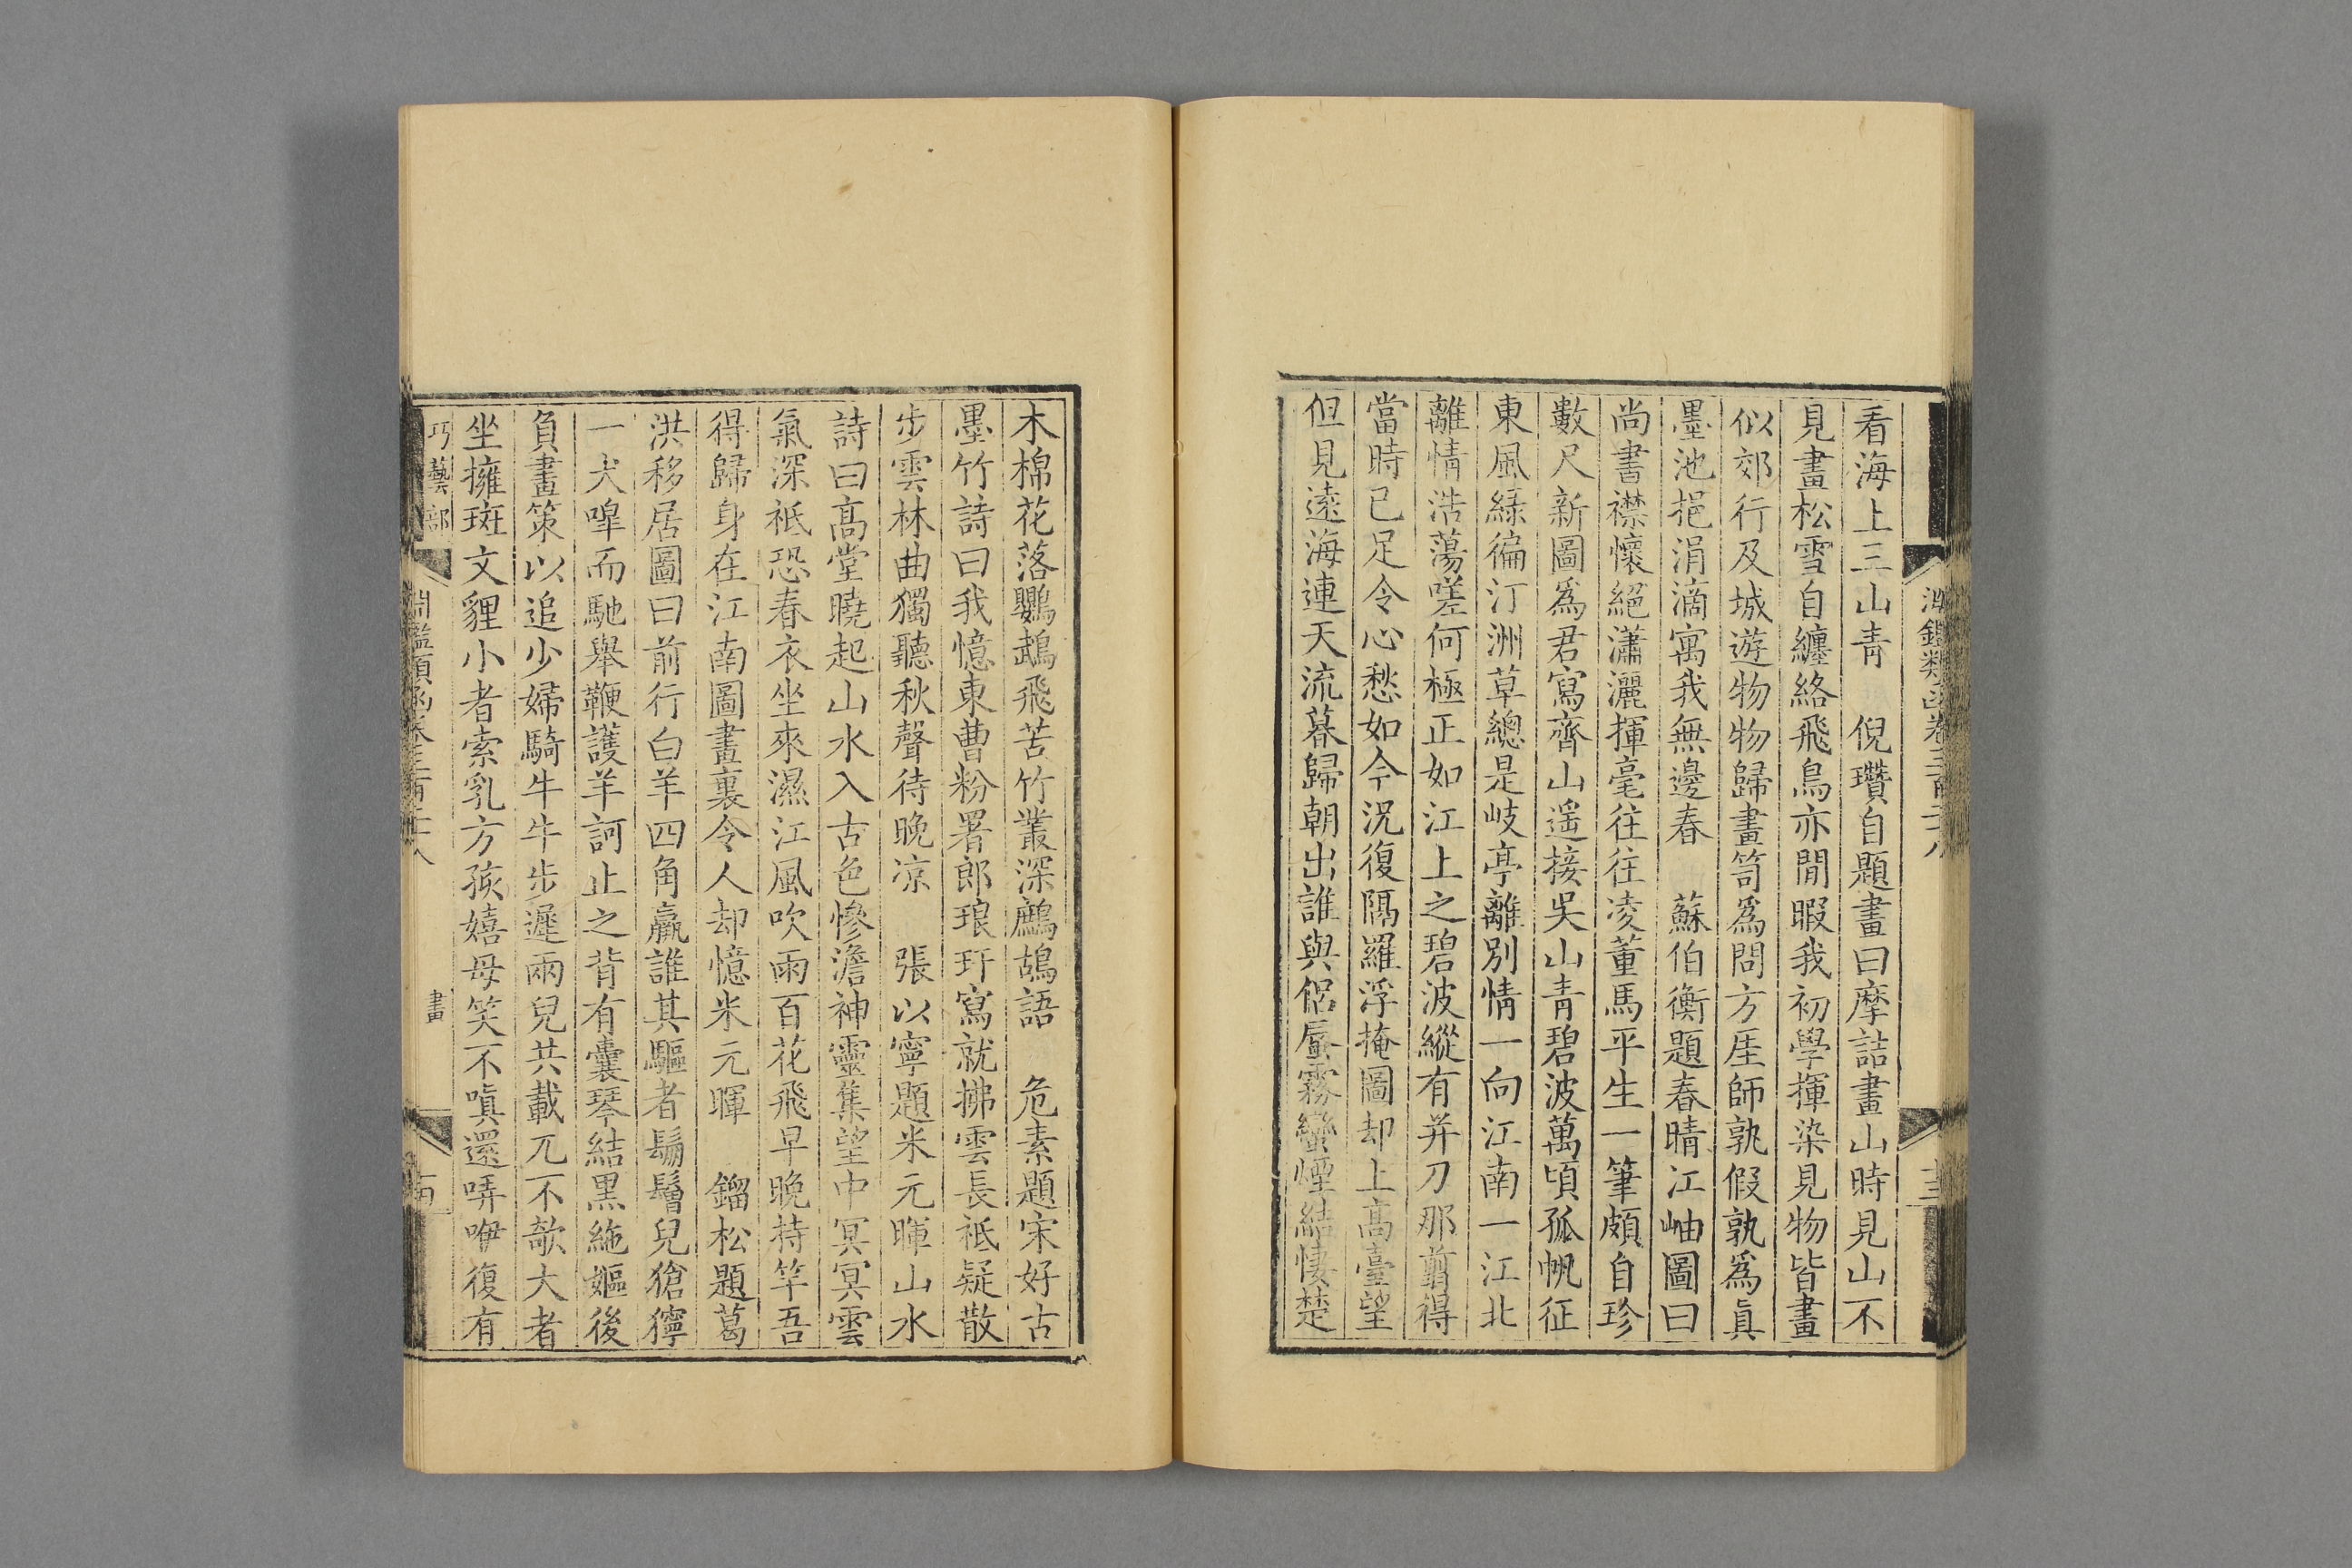 看海上三山青　倪瓚自題畫曰摩詰畫山時見山不
見畫松雪自纏絡飛鳥亦閒暇我初學揮染見物皆畫
似郊行及城遊物物歸畫笥爲問方厓師孰假孰爲眞
墨池挹涓滴寓我無邊春　蘇伯衡題春晴江岫圖曰
尚書襟懷絕瀟灑揮毫往往凌董馬平生一筆頗自珍
數尺新圖爲君寫齊山遥接吳山青碧波萬頃孤帆征
東風綠徧汀洲草總是岐亭離別情一向江南一江北
離情浩蕩嗟何極正如江上之碧波縱有并刀那剪得
當時已足令心愁如今況復隔羅浮掩圖却上高臺望
但見遠海連天流暮歸朝出誰與侶蜃霧蠻煙結悽楚
木棉花落鸚鵡飛苦竹叢深鷓鴣語　危素題宋好古
墨竹詩曰我憶東曹粉署郎琅玕寫就拂雲長祗疑散
步雲林曲獨聽秋聲待晚凉　張以寧題米元暉山水
詩曰高堂曉起山水入古色慘澹神靈集望中冥冥雲
氣深祗恐春衣坐來濕江風吹雨百花飛早晚持竿吾
得歸身在江南圖畫裏令人却憶米元暉　鎦松題葛
洪移居圖曰前行白羊四角羸誰其驅者鬅鬙兒獊獰
一犬嘷而馳舉鞭護羊訶止之背有囊琴結黑絁嫗後
負畫策以追少婦騎牛牛步遲兩兒共載兀不欹大者
坐擁斑文貍小者索乳方孩嬉母笑不嗔還哢咿復有
巧藝部
畫